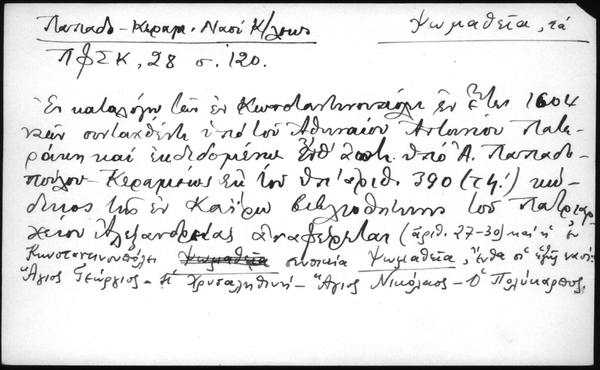 Παπαδο-Κεραμ. Ναοὶ Κ/λεως
Ψωμαθεῖα, τά
ΠΦΣΚ, 28 σ. 120.
Ἐν καταλόγῳ τῶν ἐν Κωνσταντινουπόλει ἐν ἔτει 1604
ναῶν συνταχθέντι ὑπὸ τοῦ Ἀθηναίου Ἀντωνίου Πατε-
ράκη καὶ ἐκδιδομένῳ ὑπὸ Ἀ. Παπαδο-
πούλου Κεραμέως ἐκ τοῦ ὑπ' ἀριθ. 390 κώ-
δικος τῆς ἐν Καΐρῳ βιβλιοθήκης τοῦ Πατριαρ-
χείου Ἀλεξανδρείας ἀναφέρεται (ἀριθ. 27-30) καὶ ἡ ἐν
Κωνσταντινουπόλει Ψωμαθεῖα συνοικία Ψωμαθεῖα, ἔνθα οἱ ἑξῆς ναοί:
Ἅγιος Γεώργιος - Ἡ Χρυσαληθινή - Ἅγιος Νικόλαος - Ὁ Πολύκαρπος.